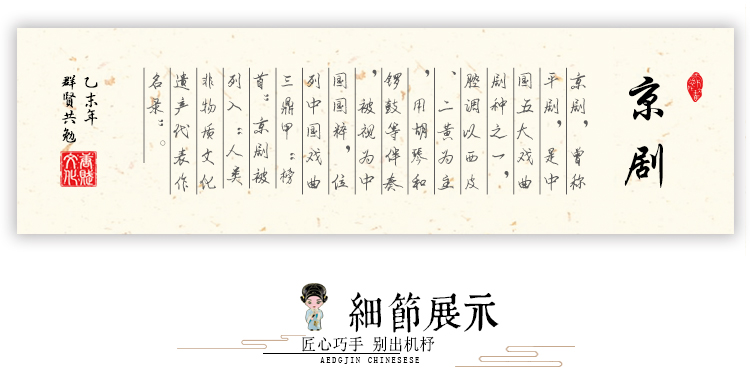 京剧
京剧，曾称
平剧，是中
国五大戏曲
剧种之一，
腔调以西皮
、二黄为主
，用胡琴和
锣鼓等伴奏
，被视为中
国国粹，位
列中国戏曲
三鼎甲“榜
首”京剧被
列入“人类
非物质文化
遗产代表作
名录”。
乙未年
群贤共勉
細節展示
匠心巧手 别出机杼
AEDGJIN CHINESESE